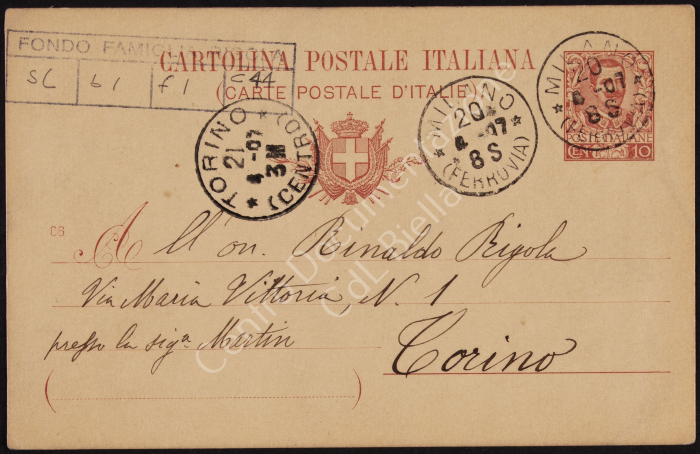 FONDO FAMIGLIA RIGOLA
SC b1 f1 C44
CARTOLINA POSTALE ITALIANA
(CARTE POSTALE D'ITALIE)
TORINO
21
4-07
3M
* (CENTRO) *
MILANO
20
4-07
8S
* (FERROVIA) *
MILANO
20
4-07
8S
POSTE ITALIANE
CENT. 10
C6
All'on. Rinaldo Rigola
Via Maria Vittoria, N. 1
presso la sigª Martin
Torino
Centro Documentazione
CdL Biella